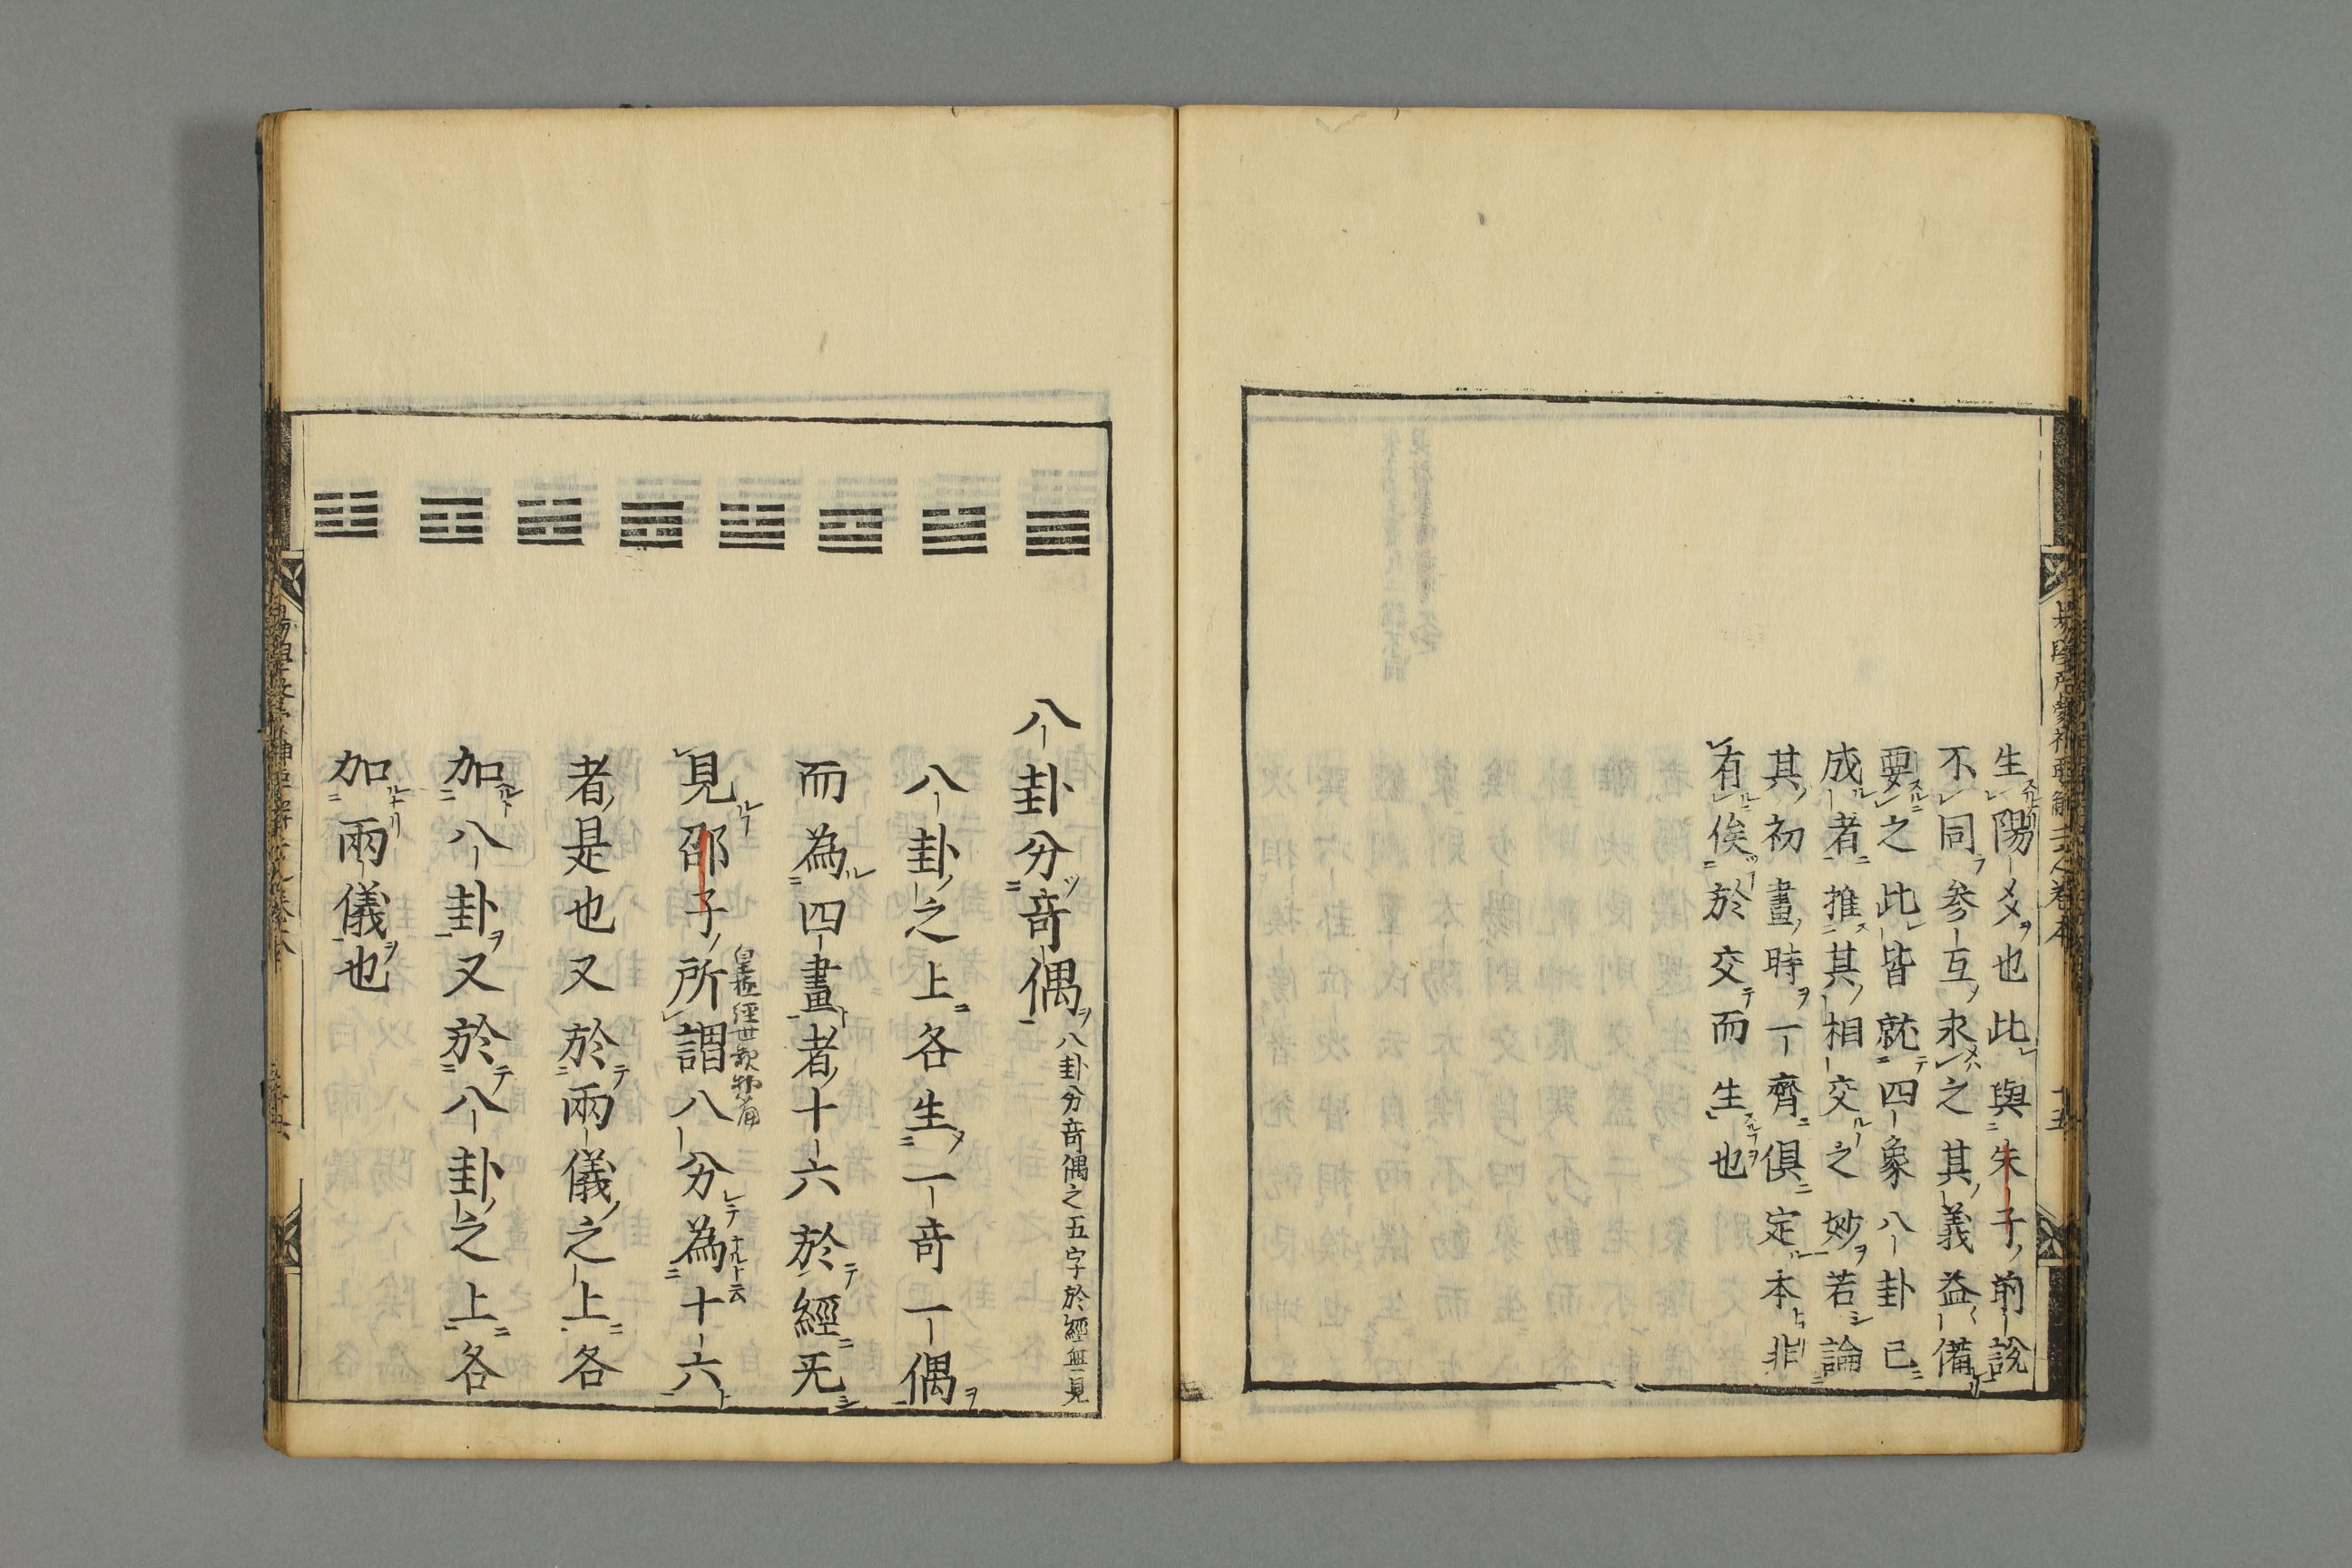 生陽爻也此與朱子前說
不同参互求之其義益備
要之此皆就四象八卦已
成者推其相交之妙若論
其初畫時一齊俱定本非
有俟於交而生也
八卦分奇偶 八卦分奇偶之五字於經無見
八卦之上各生一奇一偶
而為四畫者十六於經无
見邵子所謂八分為十六
皇極經世觀物篇
者是也又於兩儀之上各
加八卦又於八卦之上各
加兩儀也